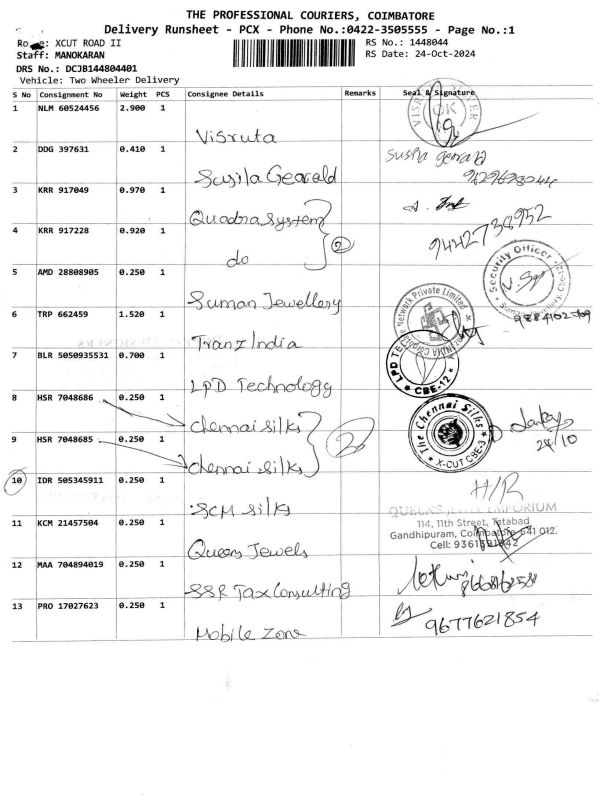 THE PROFESSIONAL COURIERS, COIMBATORE
Delivery Runsheet - PCX - Phone No.:0422-3505555 - Page No.:1
XCUT ROAD II RS No.: 1448044
Staff: MANOKARAN RS Date: 24-Oct-2024
DRS No.: DCJB144804401
Vehicle: Two Wheeler Delivery
S No Consignment No Weight PCS Consignee Details Remarks Seal & Signature
1 NLM 60524456 2.900 1 Visruta OK
2 DDG 397631 0.410 1 Susila Gearald
3 KRR 917049 0.970 1 Quadra System
4 KRR 917228 0.920 1 do 2 9442738952
5 AMD 28808905 0.250 1 Suman Jewellery Security Officer
6 TRP 662459 1.520 1 Tranz India Network Private Limited
7 BLR 5050935531 0.700 1 LPD Technology LPD TE CBE-12
8 HSR 7048686 0.250 1 Chennai silks The Chennai Silks X-CUT CBE-3
9 HSR 7048685 0.250 1 chennai silks 2 24/10
10 IDR 505345911 0.250 1 SCM silks H/R
QUEENS JEWEL EMPORIUM
114, 11th Street, Tatabad
Gandhipuram, Coimbatore 641 012.
Cell:
11 KCM 21457504 0.250 1 Queens Jewels
12 MAA 704894019 0.250 1 SSR Tax Consulting
13 PRO 17027623 0.250 1 Mobile Zone 9677621854